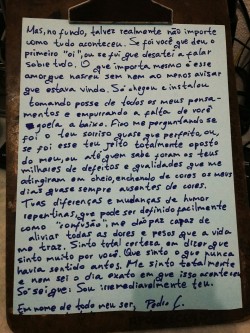 Mas, no fundo, talvez realmente não importe
como tudo aconteceu. Se foi você que deu o
primeiro "oi", ou se fui que desatei a falar
sobre tudo. O que importa mesmo é esse
amor que nasceu sem nem ao menos avisar
que estava vindo. Só chegou e instalou
tomando posse de todos os meus pensa-
mentos e empurrando a falta de você
goela a baixo. Fico me perguntando se
foi o teu sorriso quase que perfeito ou,
se foi esse teu jeito totalmente oposto
do meu, ou até quem sabe foram os teus
milhares de defeitos e qualidades, que me
atingiram em cheio, enchendo de cores os meus
dias quase sempre ausentes de cores.
Tuas diferenças e mudanças de humor
repentinas, que pode ser definido facilmente
como "confusão", me dão paz capaz de
aliviar todas as dores e pesos que a vida
me traz. Sinto total certeza em dizer que
sinto muito por você. Que sinto o que nunca
havia sentido antes. Me sinto totalmente
e nem sei o dia exato em que isso aconteceu
Só sei que: Sou irremediavelmente teu.
Em nome de todo meu ser, Pedro L.